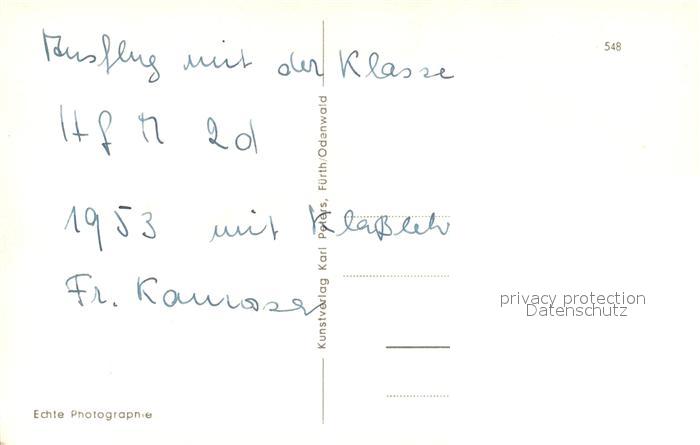 Ausflug mit der Klasse
548
Hf M 2d
1953 mit Klaßleh
Fr.
Kunstverlag Karl Peters, Fürth/Odenwald
privacy protection
Datenschutz
Echte Photographie